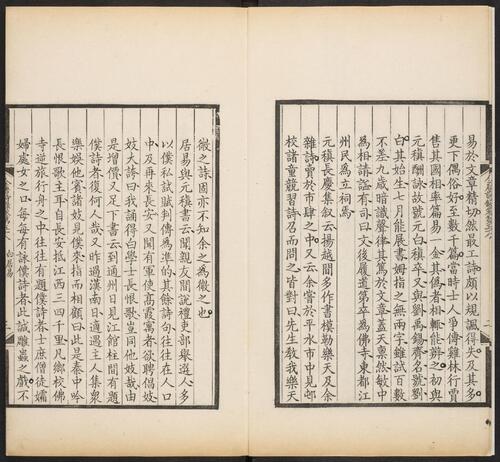 易於文章精切然最工詩頗以規諷得失及其多
更下偶俗好至數千篇當時士人爭傳雞林行賈
售其國相率篇易一金其偽者相輒能辨之初與
元稹酬詠故號元白稹卒又與劉禹錫齊名號劉
白其始生七月能展書姆指之無兩字雖試百數
不差九歲暗識聲律其篤於文章蓋天稟然敏中
為相請謚有司曰文後履道第卒為佛寺東都江
州民為立祠焉
元稹長慶集叙云揚越閒多作書模勒樂天及余
雜詩賣於市肆之中又云余嘗於平水市中見邨
校諸童競習詩召而問之皆對曰先生教我樂天
微之詩固亦不知余之為微之也
居易與元稹書云聞親友閒說禮吏部舉選人多
以僕私試賦判傳為準的其餘詩句往往在人口
中及再來長安又聞有軍使高霞寓者欲聘倡妓
妓大誇曰我誦得白學士長恨歌豈同他妓哉由
是增價又足下書云到通州日見江館柱閒有題
僕詩者復何人哉又昨過漢南日適遇主人集衆
樂娛他賓諸妓見僕來指而相顧曰此是秦中吟
長恨歌主耳自長安抵江西三四千里凡鄉校佛
寺逆旅行舟之中往往有題僕詩者士庶僧徒孀
婦處女之口每每有詠僕詩者此誠雕蟲之戲不